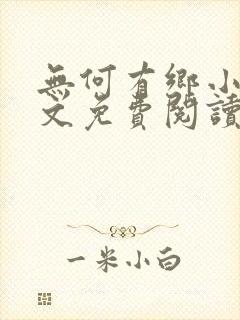 無何有鄉小
文免費閱讀
一米小白